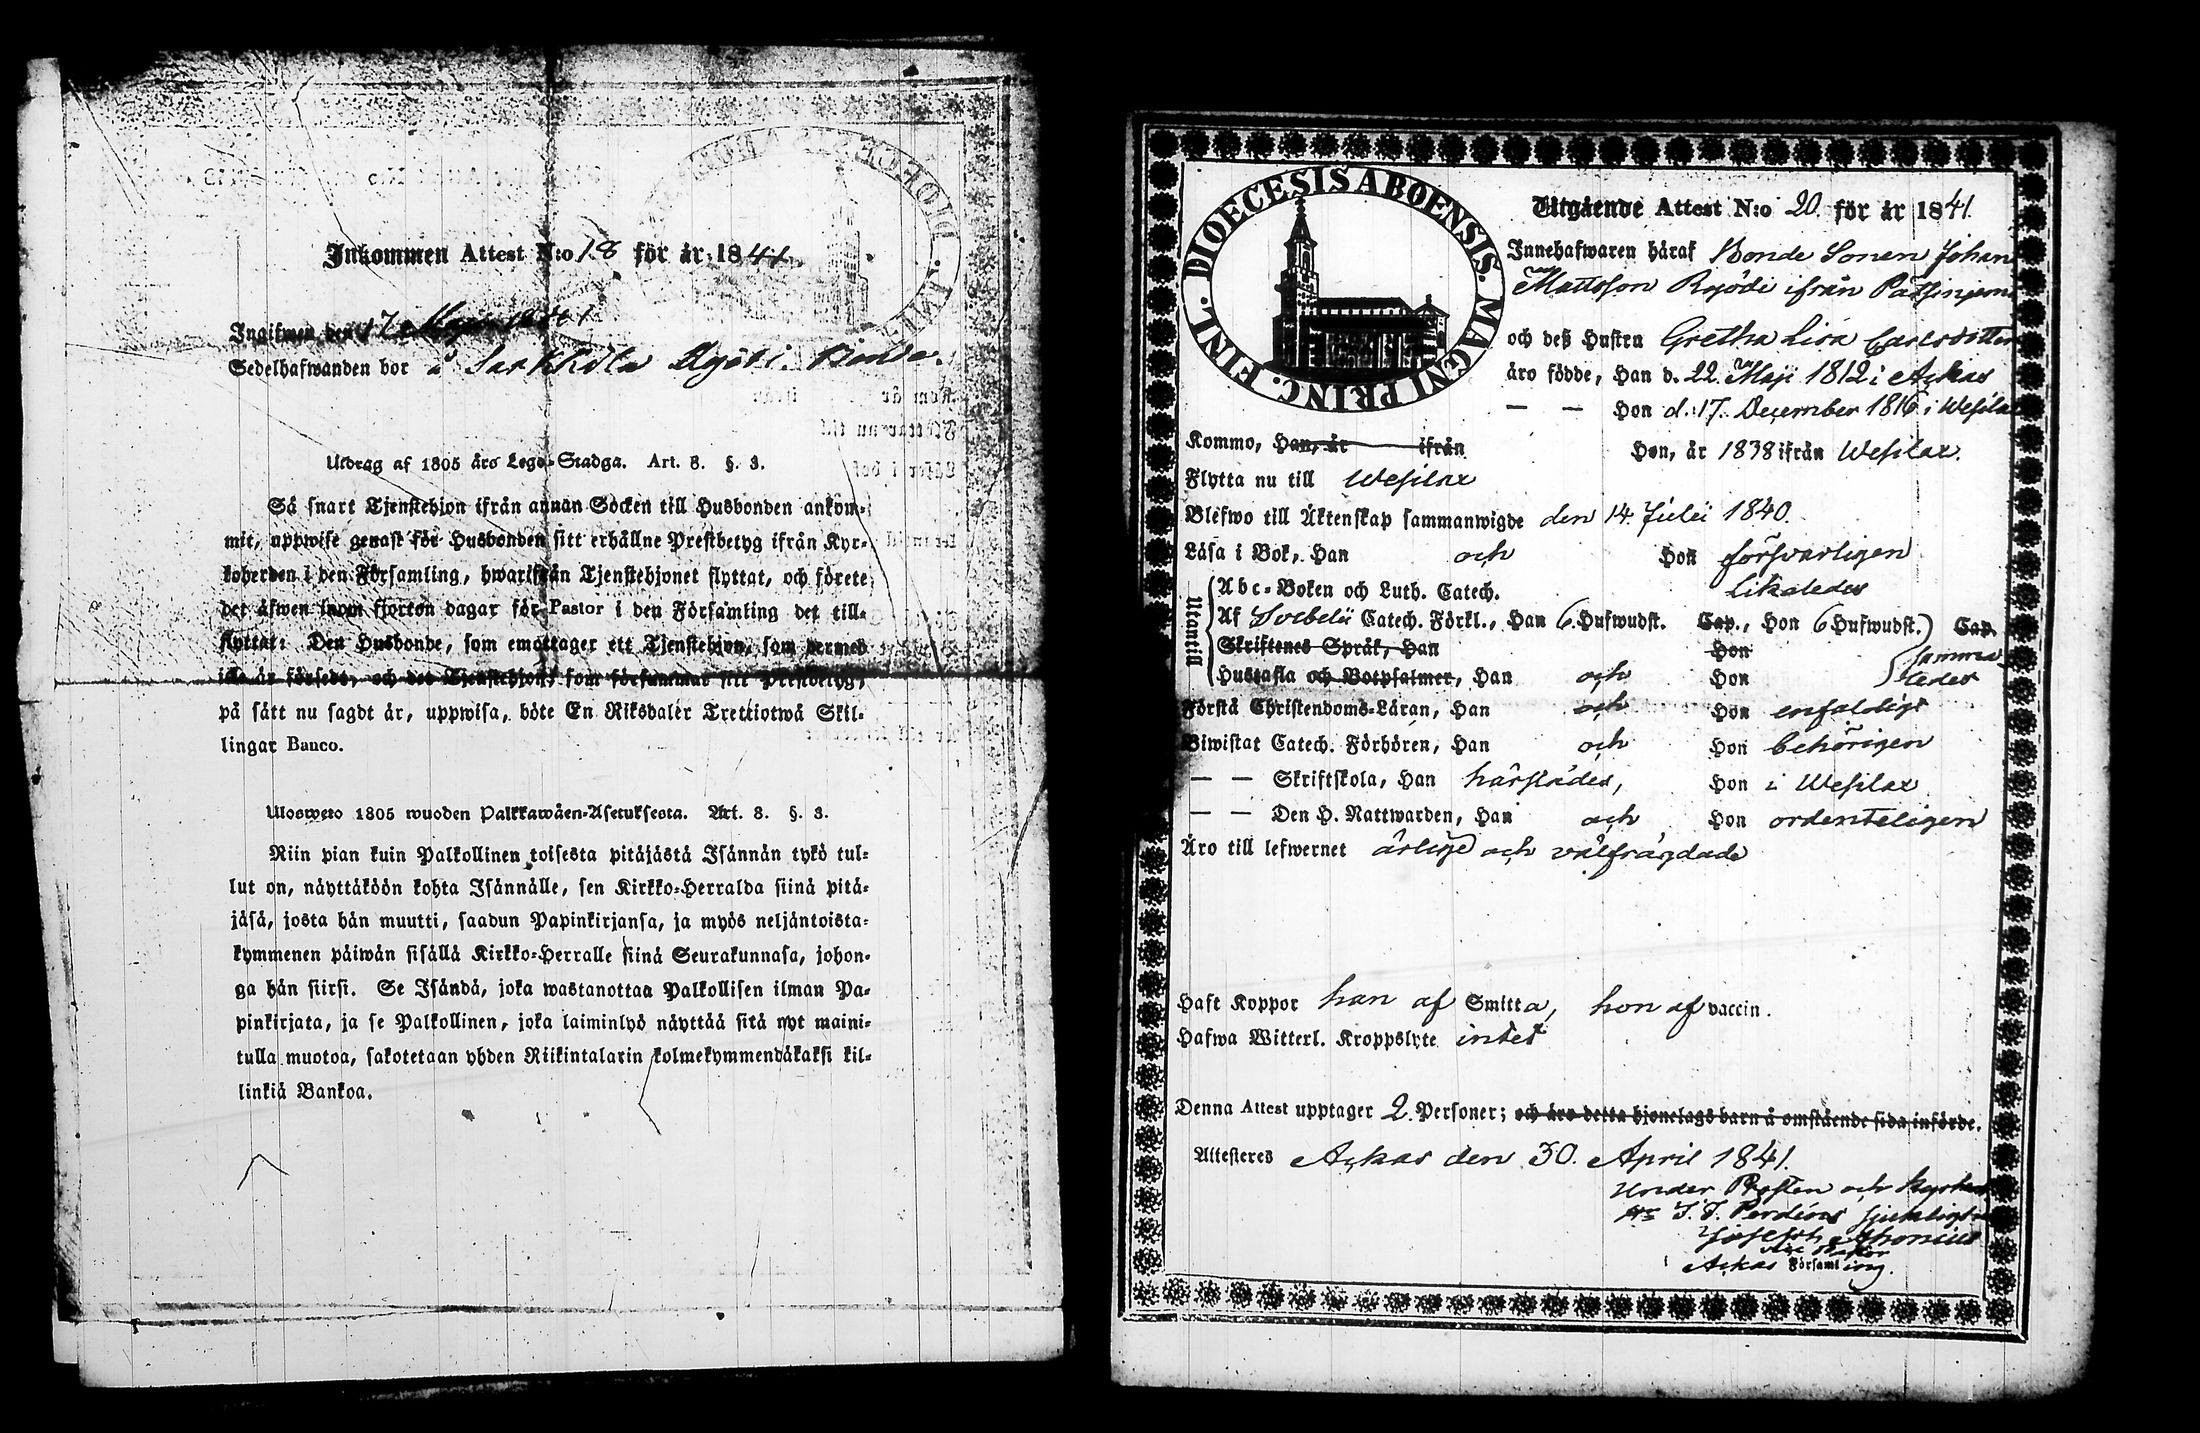 Inkommen Attest N:o 18 för år 1841.
Ingifwen den 17 Maji 1841
Sedelhafwanden bor å Sarkkila Ryöti Bonde.
Utdrag af 1805 års Lego-Stadga. Art. 8. §. 3.
Så snart Tjenstehjon ifrån annan Socken till Husbonden ankom-
mit, uppwise genast för Husbonden sitt erhållne Prestbetyg ifrån Kyr-
koherden i den Församling, hwarifrån Tjenstehjonet flyttat, och förete
det äfwen inom fjorton dagar för Pastor i den Församling det till-
flyttat: Den Husbonde, som emottager ett Tjenstehjon, som dermed
icke är försedt, och det Tjenstehjon, som försummar sitt Prestbetyg,
på sätt nu sagdt är, uppwisa, böte En Riksdaler Trettiotwå Skil-
lingar Banco.
Uloswето 1805 wuoden Palkkawäen-Asetuksesta. Art. 8. §. 3.
Niin pian kuin Palkollinen toisesta pitäjästä Isännän tykö tul-
lut on, näyttäköön kohta Isännälle, sen Kirkko-Herralda siinä pitä-
jäsä, josta hän muutti, saadun Papinkirjansa, ja myös neljäntoista-
kymmenen päiwän sisällä Kirkko-Herralle siinä Seurakunnasa, johon-
ga hän siirsi. Se Isändä, joka wastanottaa Palkollisen ilman Pa-
pinkirjata, ja se Palkollinen, joka laiminlyö näyttää sitä nyt maini-
tulla muotoa, sakotetaan yhden Riikintalarin kolmekymmendäkaksi kil-
linkiä Bankoa.
DIOECESIS ABOENSIS. MAGNI PRINC. FINL.
Utgående Attest N:o 20. för år 1841.
Innehafwaren häraf Bonde Sonen Johan
Mattsson Ryödi ifrån
och deß Hustru Gretha Lisa Carlsdotter
äro födde, Han d. 22. Maji 1812 i Ackas
— — Hon d. 17. December 1816 i Wesilax
Kommo, Han, år ifrån Hon, år 1838 ifrån Wesilax.
Flytta nu till Wesilax
Blefwo till Äktenskap sammanwigde den 14. Julii 1840.
Läsa i Bok, Han och Hon försvarligen
Utantill
Abc-Boken och Luth. Catech. likaledes
Af Svebelii Catech. Förkl., Han 6. Hufwudst. Cap., Hon 6 Hufwudst. Cap.
Skriftenes Språk, Han Hon
Hustafla och Botpsalmer, Han och Hon samma ledes
Förstå Christendoms-Läran, Han och Hon enfaldigt
Biwistat Catech. Förhören, Han och Hon behörigen
— — Skriftskola, Han härstädes, Hon i Wesilax
— — Den H. Nattwarden, Han och Hon ordenteligen
Äro till lefwernet ärlige och välfrägdade
Haft Koppor han af Smitta, hon af vaccin.
Hafwa Witterl. Kroppslyte intet
Denna Attest upptager 2. Personer; och äro detta hjonelags barn å omstående sida införde.
Attesteras Ackas den 30. April 1841.
Under Prosten och
Joseph
Vice Pastor
Ackas Församling.